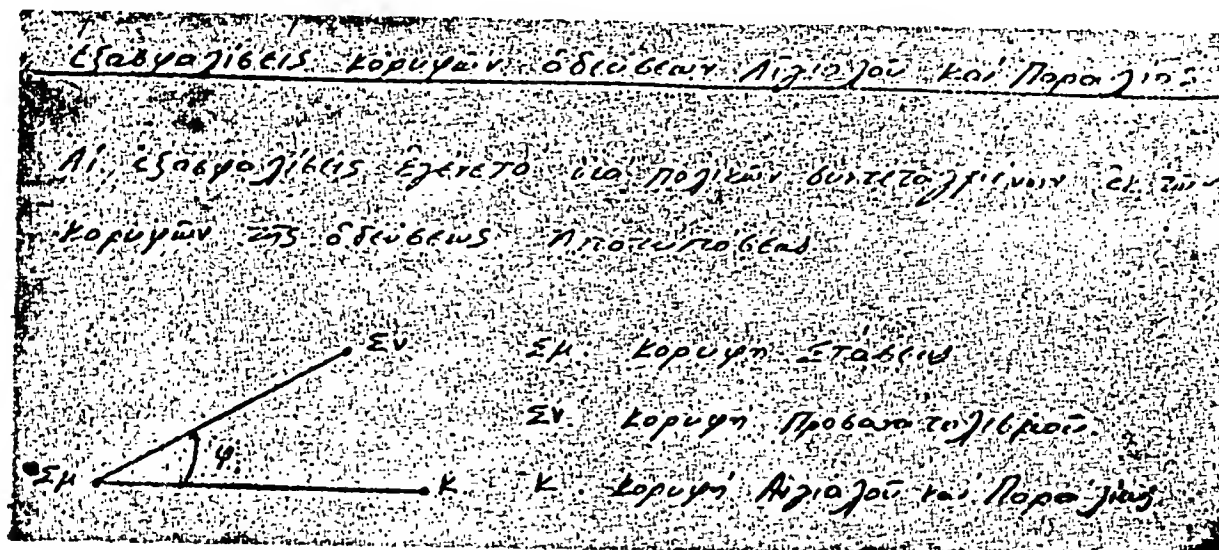 Ἐξασφαλίσεις κορυφῶν ὁδεύσεων Αἰγιαλοῦ καί Παραλίας
Αἱ ἐξασφαλίσεις ἐγένετο διά πολικῶν συντεταγμένων ἐκ τῶν
κορυφῶν τῆς ὁδεύσεως Ἀποτυπώσεως
Σν
Σμ. κορυφή Στάσεως
Σν. κορυφή Προσανατολισμοῦ
φ.
Σμ Κ Κ. κορυφή Αἰγιαλοῦ καί Παραλίας